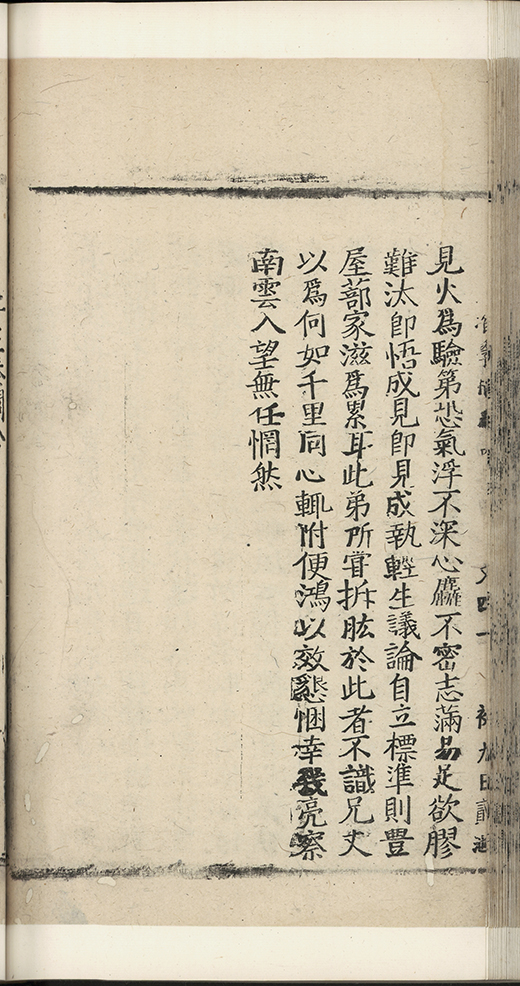 見火爲驗第恐氣浮不深心麤不密志滿易足欲膠
難汰卽悟成見卽見成執輕生議論自立標準則豊
屋蔀家滋爲累耳此弟所甞拆肱於此者不識兄丈
以爲何如千里同心輒附便鴻以效懇悃幸發亮察
南雲入望無任惘然